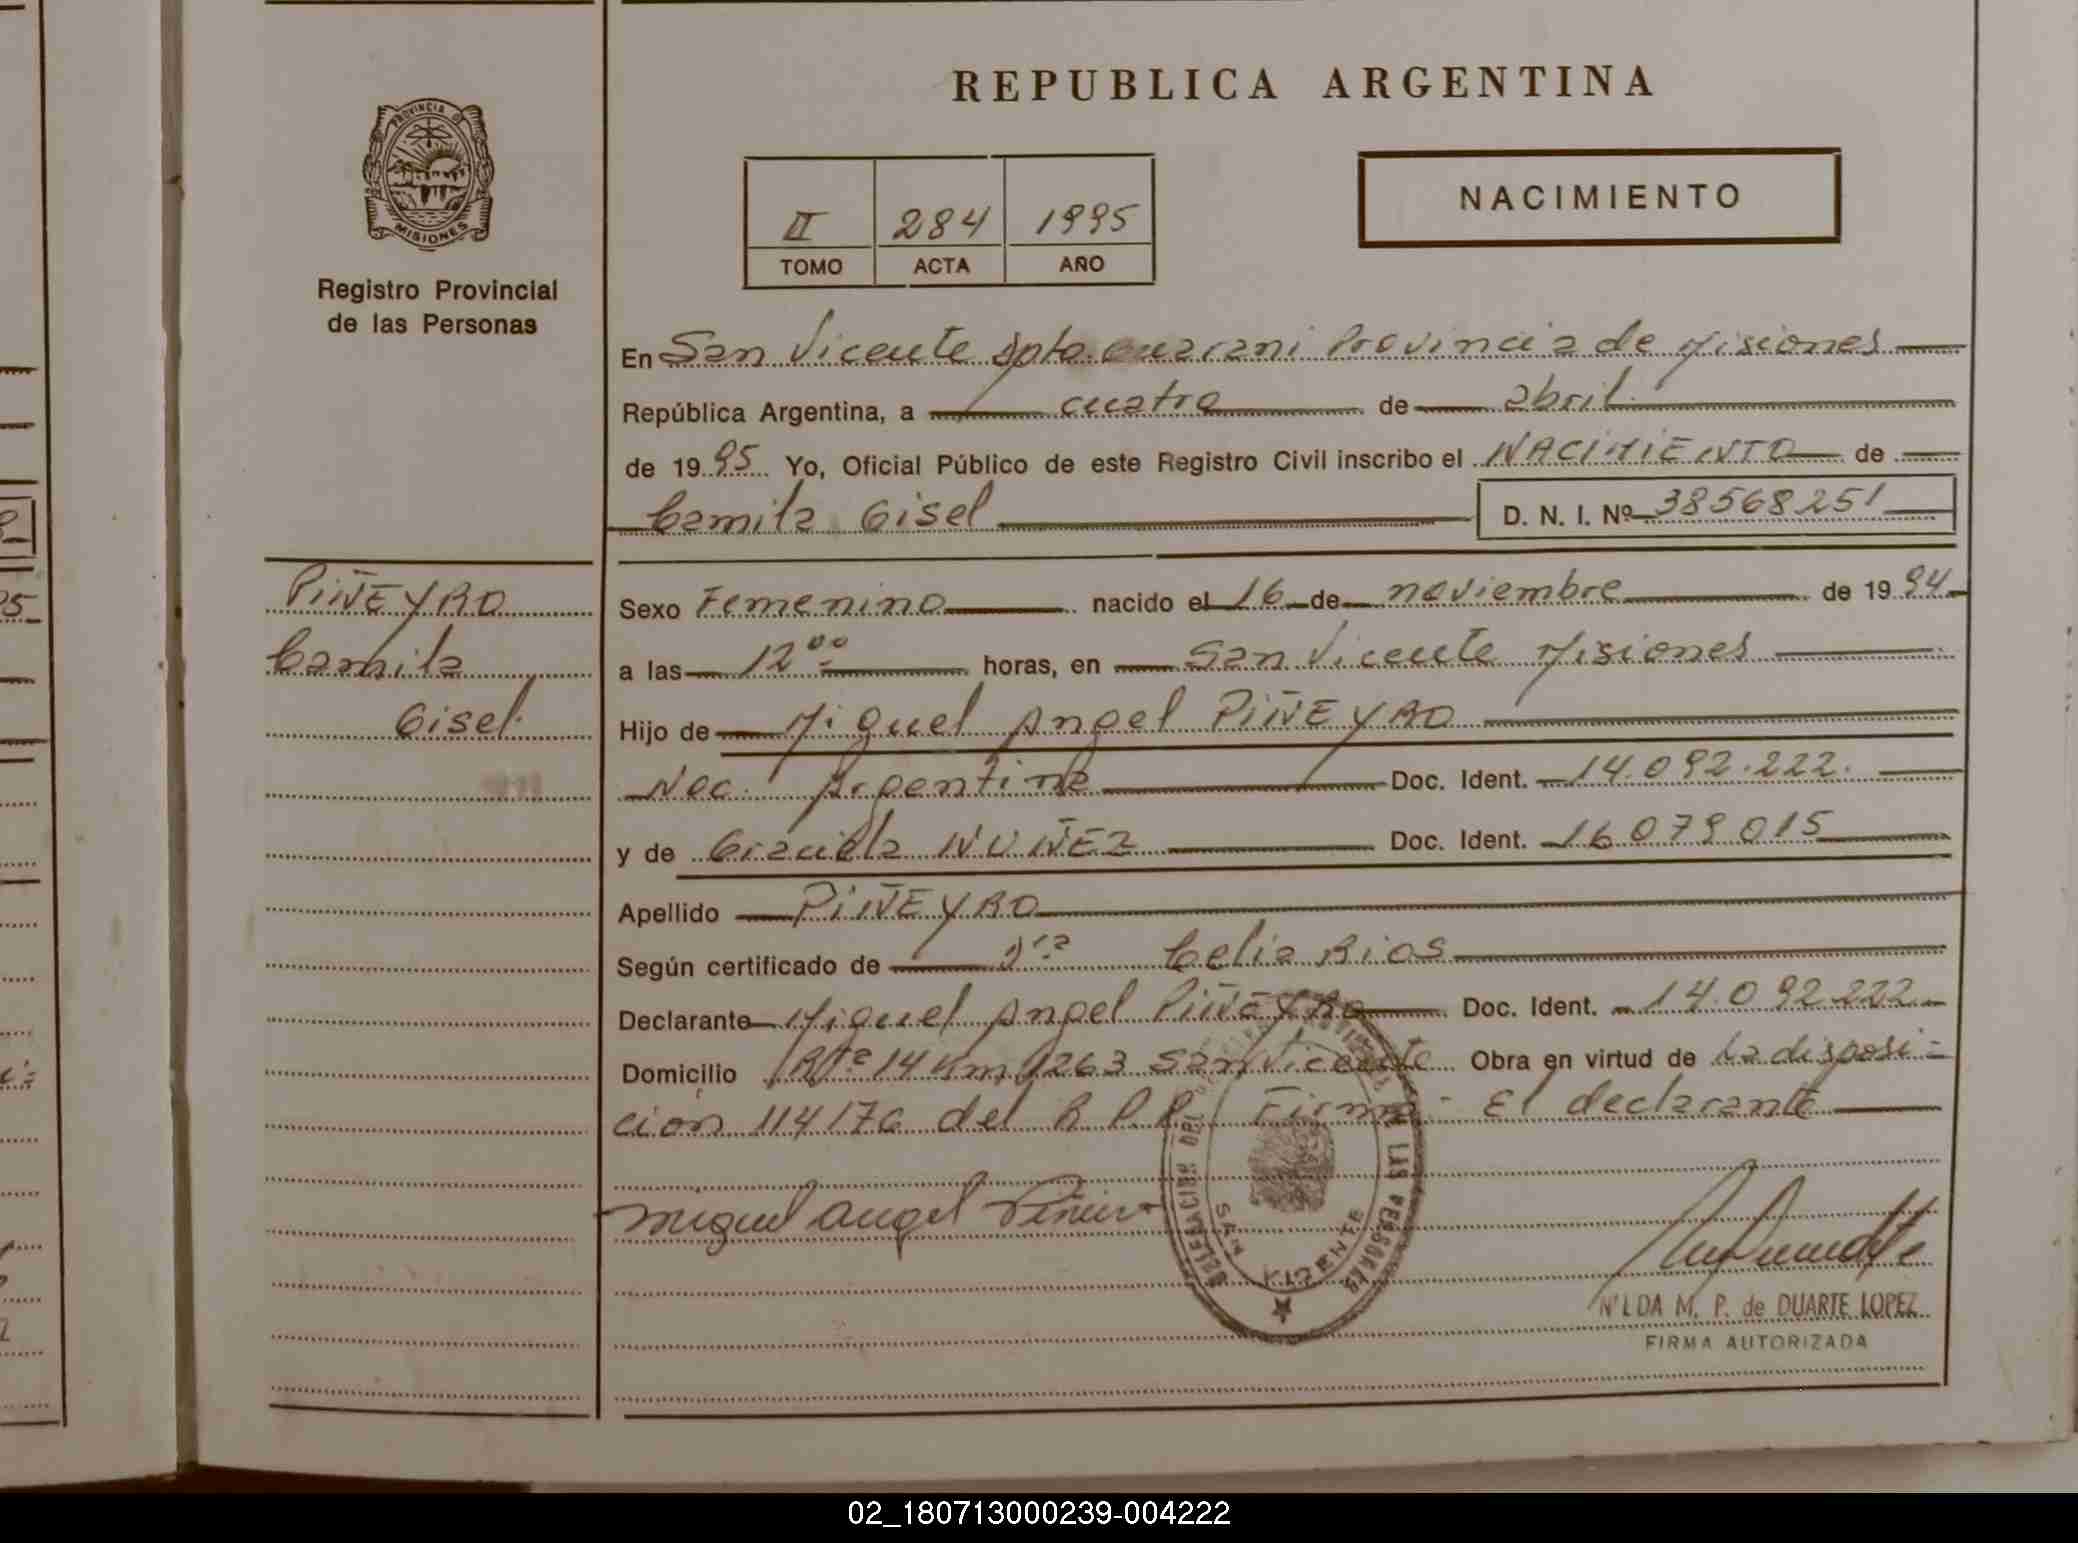 REPUBLICA ARGENTINA
PROVINCIA D
MISIONES
Registro Provincial
de las Personas
II 284 1995
TOMO ACTA AÑO
NACIMIENTO
En San Vicente Dpto. Guarani Provincia de Misiones
República Argentina, a cuatro de abril
de 1995 Yo, Oficial Público de este Registro Civil inscribo el NACIMIENTO de
Camila Gisel D. N. I. Nº 38568251
PIÑEYRO
Camila
Gisel.
Sexo Femenino nacido el 16 de noviembre de 1994
a las 12 00 horas, en San Vicente Misiones
Hijo de Miguel Angel PIÑEYRO
Nac. Argentina Doc. Ident. 14.092.222.
y de Graciela NUÑEZ Doc. Ident. 16.079.015
Apellido PIÑEYRO
Según certificado de Dra Celia Rios
Declarante Miguel Angel PIÑEYRO Doc. Ident. 14.092.222
Domicilio Rta 14 Km 1263 San Vicente Obra en virtud de la disposi-
ción 114/76 del R.P.P. Firma - El declarante
Miguel Angel Piñeiro
DELEGACION DEL REGISTRO PROVINCIAL DE LAS PERSONAS
SAN VICENTE
NILDA M. P. de DUARTE LOPEZ
FIRMA AUTORIZADA
02_180713000239-004222